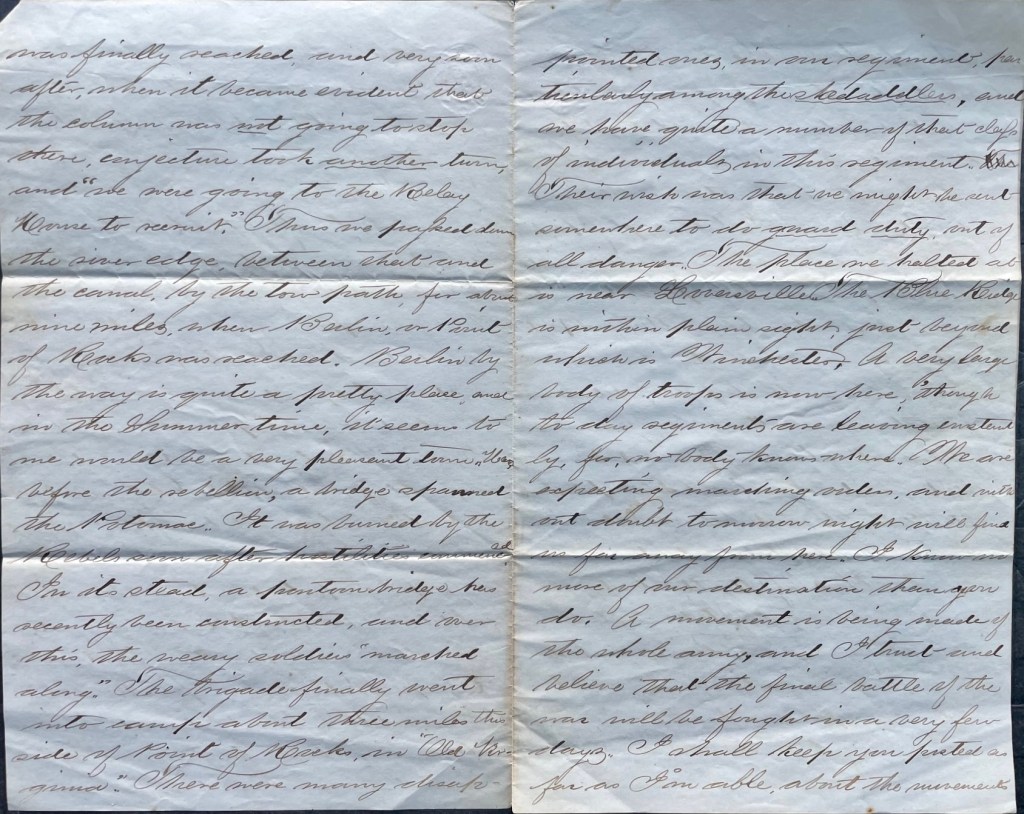 was finally reached, and very soon
after, when it became evident that
the column was not going to stop
there, conjecture took another turn,
and "we were going to the Relay
House to recruit." Thus we passed down
the river edge, between that and
the canal, by the tow path, for about
nine miles, when Berlin, or Point
of Rocks was reached. Berlin by
the way is quite a pretty place, and
in the Summer time, it seems to
me would be a very pleasant town.
before the rebellion, a bridge spanned
the Potomac. It was burned by the
Rebels soon after hostilities commenced.
In its stead, a pontoon bridge has
recently been constructed, and over
this, the weary soldiers "marched
along." The brigade finally went
into camp about three miles this
side of Point of Rocks, in "Old Vir-
ginia". There were many disap-
pointed men, in our regiment, par
ticularly among the skedaddlers, and
we have quite a number of that class
of individuals, in this regiment.
Their wish was that we might be sent
somewhere to do guard duty, out of
all danger. The place we halted at
is near Lovettsville. The Blue Ridge
is within plain sight, just beyond
which is Winchester. A very large
body of troops is now here, though
to day regiments are leaving constant
ly, for, no body knows where. We are
expecting marching orders, and with
out doubt to-morrow night will find
us far away from here. I know no
more of our destination than you
do. A movement is being made of
the whole army, and I trust and
believe that the final battle of the
war will be fought in a very few
days. I shall keep you posted as
far as I'm able, about the movements